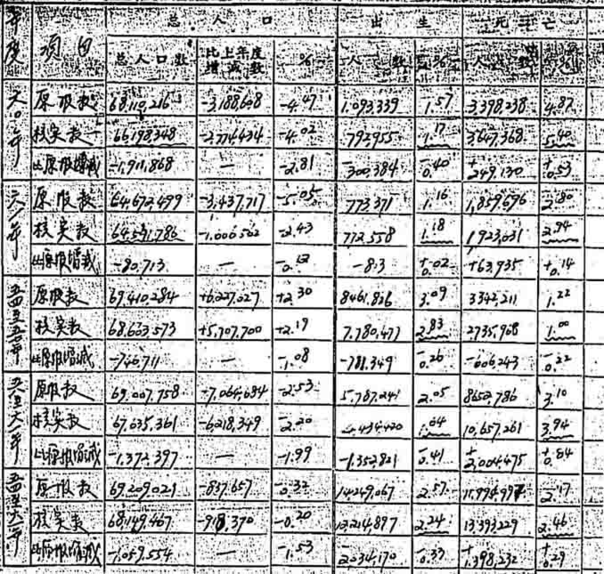 年度 项目 总人口 出生 死亡
总人口数 比上年度增减数 % 人数 % 人数 %
六〇年 原报数 68,110,216 -3,188,608 -4.47 1,093,339 1.57 3,398,238 4.87
核实数 66,198,348 -2,774,434 -4.02 792,955 1.17 3,647,368 5.40
比原报增减 -1,911,868 — -2.81 -300,384 -0.40 +249,130 +0.53
六一年 原报数 64,672,499 -3,437,717 -5.05 773,371 1.16 1,859,696 2.80
核实数 64,591,786 -1,606,562 -2.43 772,558 1.18 1,923,631 2.94
比原报增减 -80,713 — -0.12 -813 +0.02 +63,935 +0.14
五四至五七年 原报数 69,410,284 +6,227,027 +2.30 8461,826 3.09 3342,211 1.22
核实数 68,663,573 +5,707,700 +2.19 7,780,477 2.83 2735,968 1.00
比原报增减 -746,711 — -1.08 -781,349 -0.26 -606,243 -0.22
五八至六一年 原报数 69,007,758 -7,064,684 -2.53 5,787,241 2.05 8652,786 3.10
核实数 67,635,361 -6,218,349 -2.20 4,434,420 1.64 10,657,261 3.94
比原报增减 -1,372,397 — -1.99 -1,352,821 -0.41 +2,004,475 +0.84
五四至六一年 原报数 69,209,021 -837,657 -0.32 14,249,067 2.57 11,994,997 2.17
核实数 68,149,467 -0.20 12,214,897 2.24 13,393,229 2.46
比原报增减 -1,059,554 — -1.53 -2,034,170 -0.33 +1,398,232 +0.29